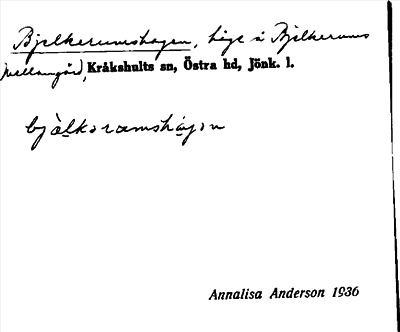 Bjelkerumshagen, läge å Bjelkerums
Mellangård, Kråkshults sn, Östra hd, Jönk. l.
bjälkoramshàgon
Annalisa Anderson 1936